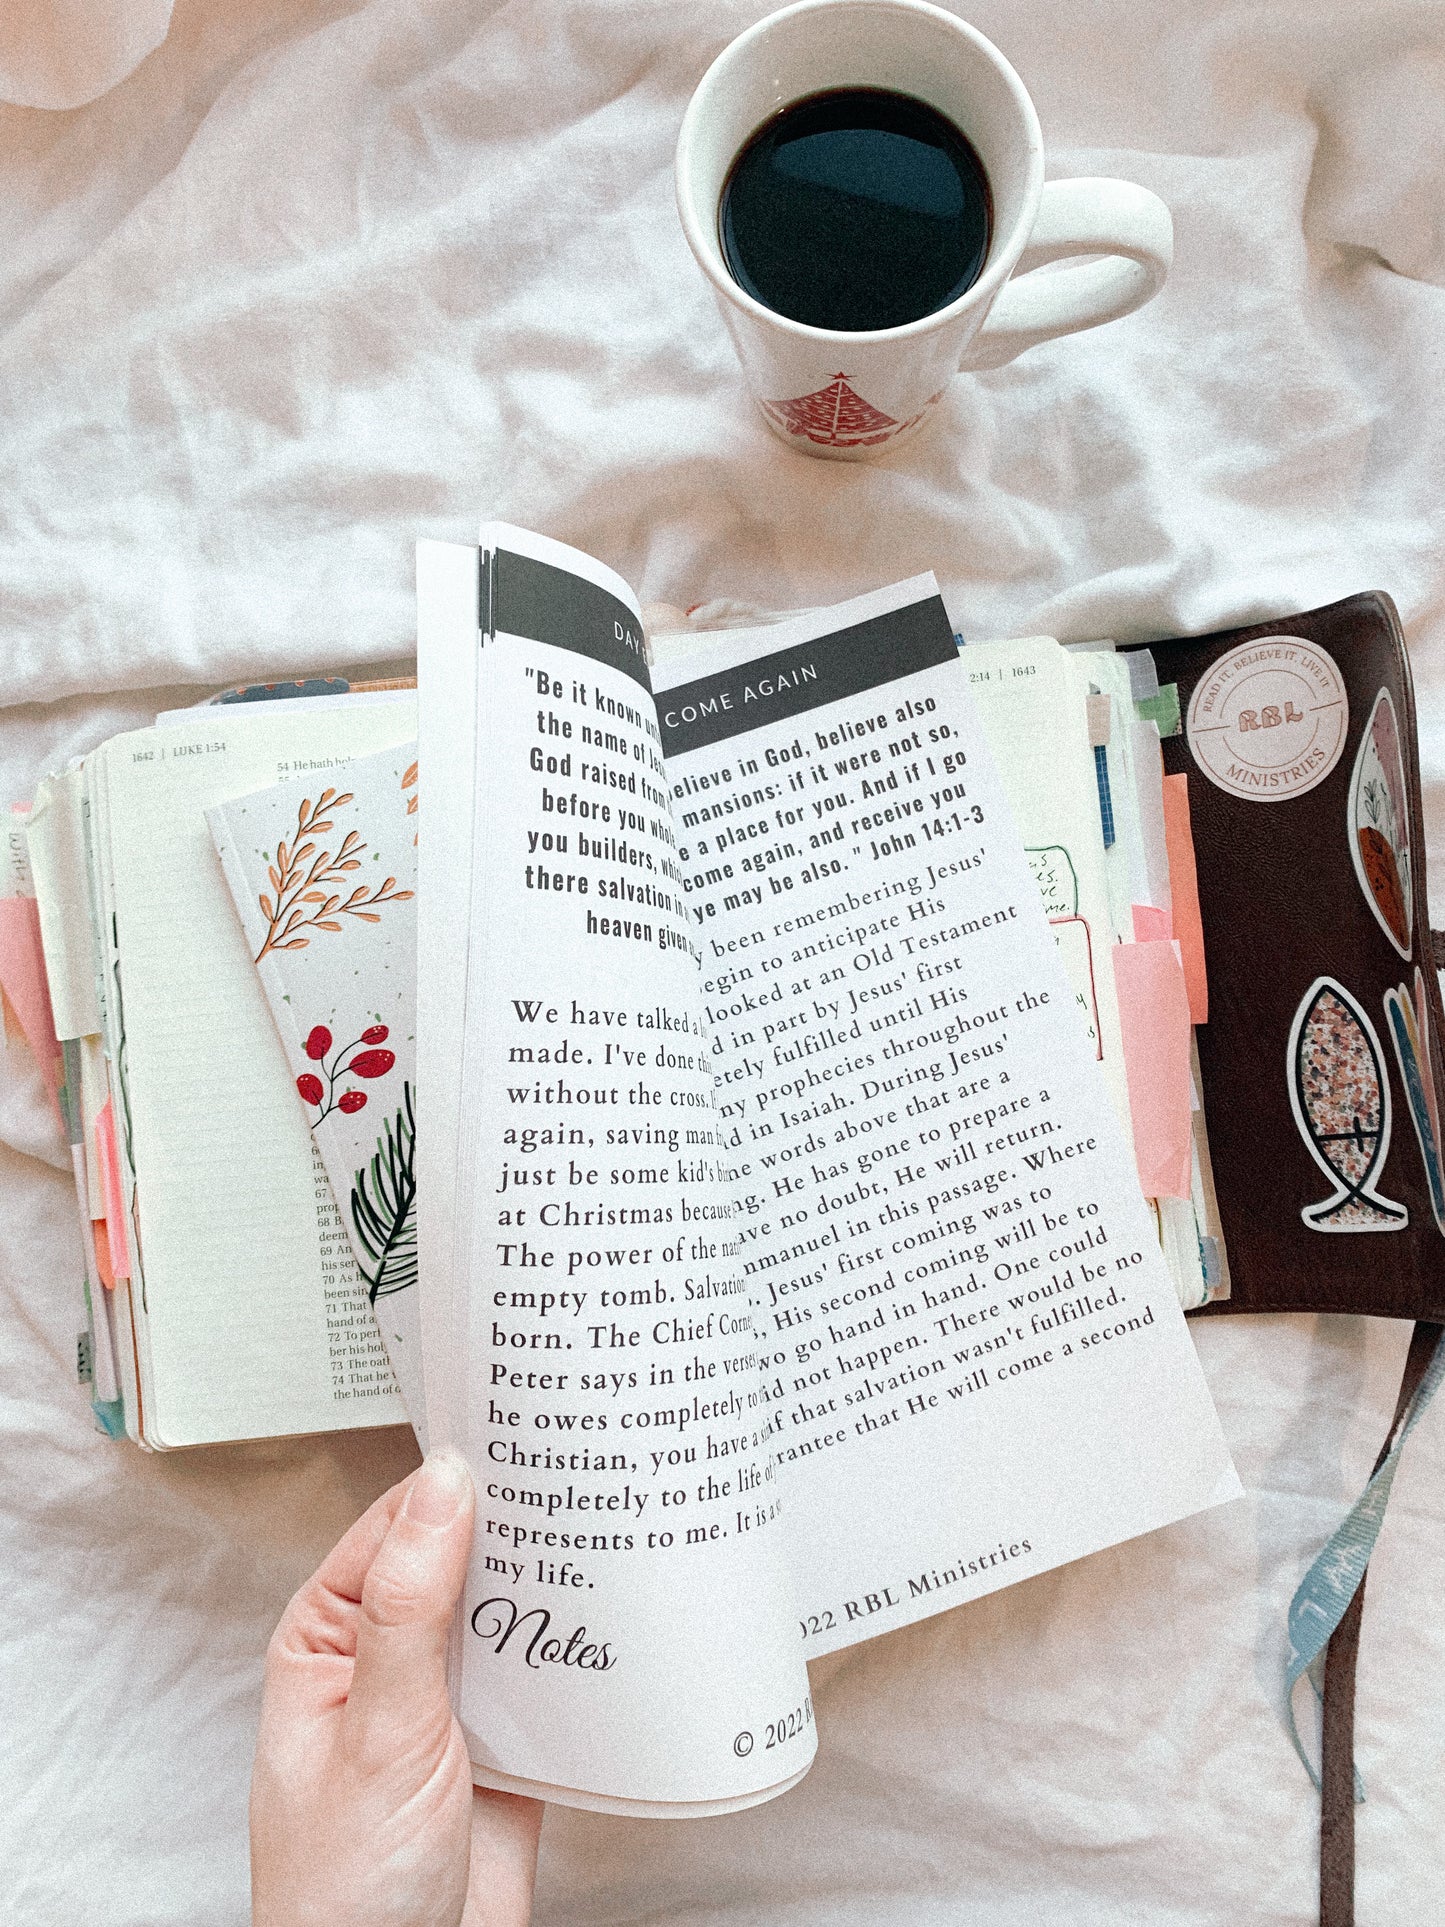 DAY
"Be it known
the name of
God raised from
before you whole
you builders,
there salvation in
heaven given
We have talked
made. I've done
without the cross.
again, saving man
just be some kid's
at Christmas because
The power of the
empty tomb. Salvation
born. The Chief
Peter says in the verses
he owes completely to
Christian, you have a
completely to the life of
represents to me. It is a
my life.
Notes
© 2022
COME AGAIN
believe in God, believe also
mansions: if it were not so,
a place for you. And if I go
come again, and receive you
ye may be also." John 14:1-3
been remembering Jesus'
begin to anticipate His
looked at an Old Testament
in part by Jesus' first
fulfilled until His
prophecies throughout the
in Isaiah. During Jesus'
words above that are a
He has gone to prepare a
no doubt, He will return.
in this passage. Where
Jesus' first coming was to
His second coming will be to
go hand in hand. One could
not happen. There would be no
if that salvation wasn't fulfilled.
that He will come a second
RBL Ministries
1642 | LUKE 1:54
54 He hath
67
68
69 And
his ser
70 As
been sin
71 That
hand of
72 To perf
ber his hol
73 The oath
74 That he
the hand of
2:14 | 1643
READ IT. BELIEVE IT. LIVE IT
RBL
MINISTRIES